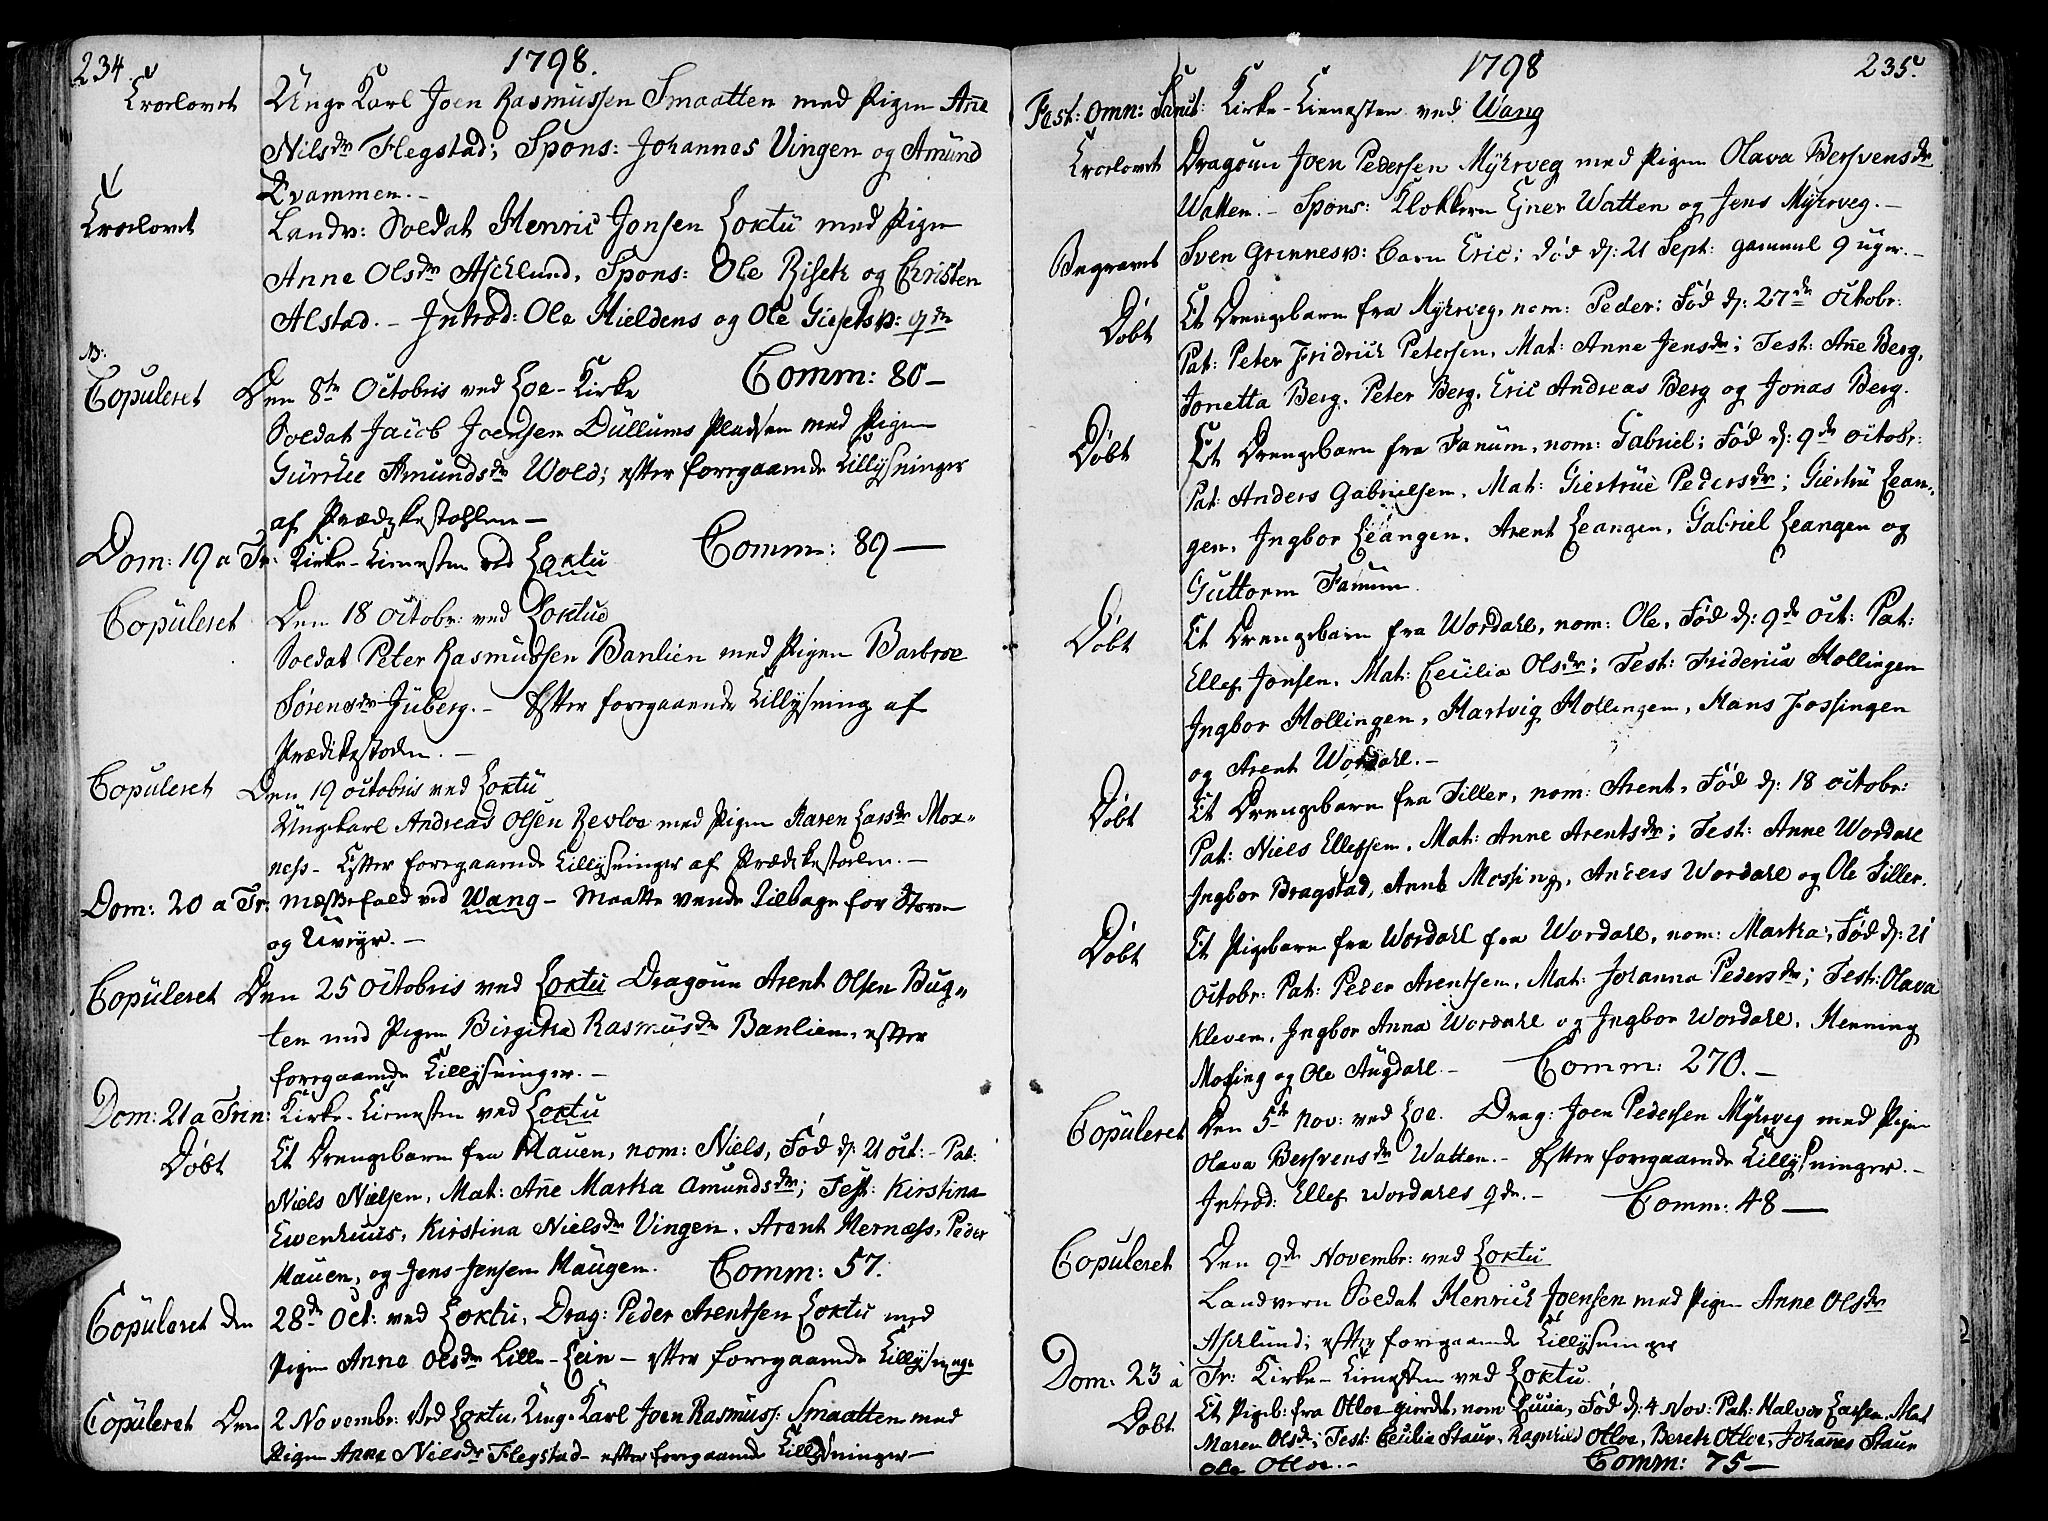 234.
1798.
Trolovet Unge Karl Joen Rasmussen Smaatten med Pigen Añe
Nilsdr Flegstad; Spons: Johannes Vingen og Amund
Qvammen. -
Trolovet Landv: Soldat Henric Jonsen Loktu med Pigen
Anne Olsdr Aschlund, Spons: Ole Riseth og Christen
Alstad. - Introd: Ole Hieldens og Ole qdr
Copuleret Den 8te Octobris ved Loe-Kirke Comm: 80 -
Soldat Jacob Joensen Dullums Pladsen med Pigen
Amundsdr Wold; efter foregaaende Tillysninger
af Prædikestohlen -
Dom: 19 a Tr: Kirke-Tienesten ved Loktu Comm: 89 -
Copuleret Den 18 Octobr: ved Loktue
Soldat Peter Rasmussen Banlien med Pigen Barbroe
Sørensdr Juberg. - Efter foregaaende Tillysning af
Prædikestolen. -
Copuleret Den 19 Octobris ved Loktu
Ungekarl Andreas Olsen Revloe med Pigen Karen Larsdr Mox=
ness - Efter foregaaende Tillysninger af Prædikestolen. -
Dom: 20 a Tr: Messefald ved Wang - Maatte vende Tilbage for Storm
og Uveyr. -
Copuleret Den 25 Octobris ved Loktu Dragoun Arent Olsen Bug=
ten med Pigen Birgitha Rasmusdr Banlien, efter
foregaaende Tillysninger. -
Dom: 21 a Trin: Kirke-Tienesten ved Loktu
Døbt Et Drengebarn fra Hauen, nom: Niels, Fød d: 21 Oct: - Pat:
Niels Nielsen, Mat: Añe Martha Amundsdr; Test: Kirstina
Ewenhuus, Kirstina Nielsdr Vingen, Arent Hernæss, Peder
Hauen, og Jens Jensen Haugen. Comm: 57.
Copuleret den 28de Oct: ved Loktu, Drag: Peder Arentsen Loktu med
Pigen Anne Olsdr Lille-Lein - efter foregaaende Tillysninge
Copuleret Den 2 Novembr: ved Loktu, Unge Karl Joen Rasmuss: Smaatten med
Pigen Anne Nielsdr Flegstad - efter foregaaende Tillysninger -
1798
235.
Fest: Omn: Sanct: Kirke-Tienesten ved Wang
Trolovet Dragoun Joen Pedersen Myhrveg med Pigen Olava Bersvensdr
Watten. - Spons: Klokkern Watten og Jens Myhrveg. -
Begravet Sven Barn Eric; død d: 21 Sept: gammel 9 uger. -
Døbt Et Drengebarn fra Myhrveg, nom: Peder; Fød d: 27de Octobr:
Pat: Peter Fridrich Petersen, Mat: Anne Jensdr; Test: Añe Berg,
Jonetta Berg, Peter Berg, Eric Andreas Berg og Jonas Berg.
Døbt Et Drengebarn fra Fanum, nom: Gabriel; Fød d: 9de Octobr:
Pat: Anders Gabrielsen, Mat: Giertrue Pedersdr; Giertru Lean=
gen, Ingbor Leangen, Arent Leangen, Gabriel Leangen og
Guttorm Fanum.
Døbt Et Drengebarn fra Wordahl, nom: Ole, Fød d: 9de Oct: Pat:
Ellef Jonsen, Mat: Cecilia Olsdr; Test: Friderica Hollingen
Ingbor Hollingen, Hartvig Hollingen, Hans Fossingen
og Arent Wordahl. -
Døbt Et Drengebarn fra Tiller, nom: Arent, Fød d: 18 Octobr:
Pat: Niels Ellefsen, Mat: Anne Arentsdr; Test: Anne Wordahl
Ingbor Bragstad, Anne Mossing, Anders Wordahl og Ole Tiller.
Døbt Et Pigebarn fra Wordahl fra Wordahl, nom: Martha, Fød d: 21
Octobr: Pat: Peder Arentsen, Mat: Johanna Pedersdr; Test: Olava
Kleven, Ingbor Anna Wordahl og Ingbor Wordahl, Henning
Mossing og Ole Augdahl - Comm: 270. -
Copuleret Den 5te Nov: ved Loe. Drag: Joen Pedersen Myhrveg med Pigen
Olava Bersvensdr Watten. - Efter foregaaende Tillysninger. -
Introd: Ellef Wordahls qdr. - Comm: 48 -
Copuleret Den 9de Novembr: ved Loktu
Landvern Soldat Henrich Joensen med Pigen Anne Olsdr
Aschlund; efter foregaaende Tillysninger
Dom: 23 a Tr: Kirke-Tienesten ved Loktu.
Døbt Et Pigeb: fra Otloe gierdet, nom Lucia, Fød d: 4 Nov: Pat: Halvor Larsen. Mat
Maren Olsdr; Test: Cecilia Staur, Ragnhild Otloe, Bereth Otloe, Johañes Staur
Ole Otloe. - Comm: 75 -